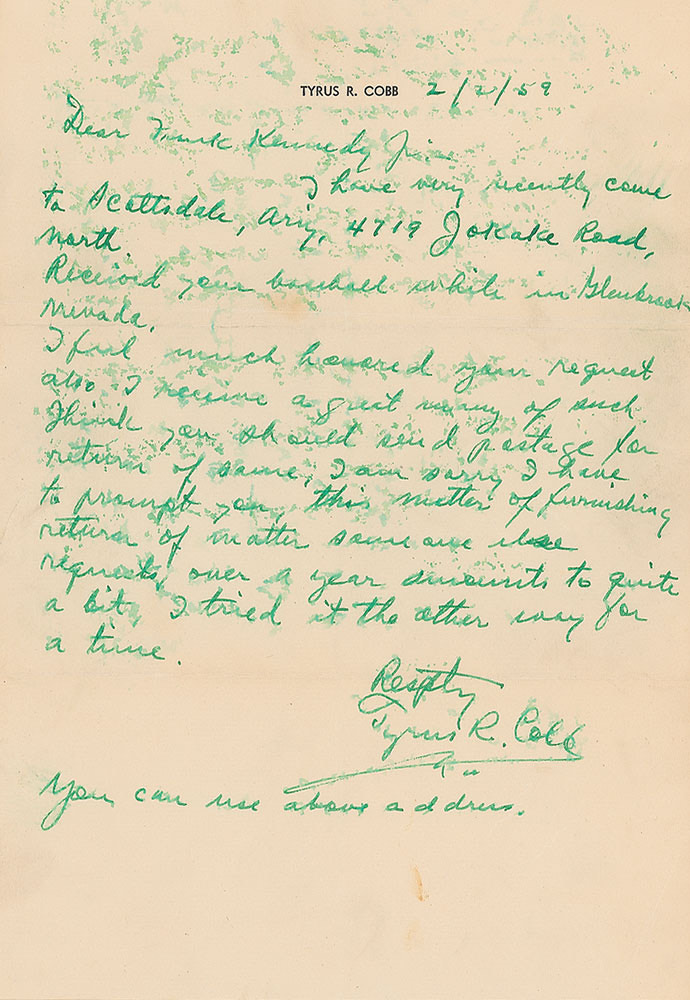 TYRUS R. COBB 2/2/59
Dear Frank Kennedy Jr.
I have very recently come
to Scottsdale, Ariz, 4719 Jokake Road,
North.
Received your baseball while in Glenbrook
Nevada.
I feel much honored your request
also I receive a great many of such.
Think you should send postage for
return of same, I am sorry I have
to prompt you, this matter of furnishing
return of matter some one else
requests, over a year amounts to quite
a bit, I tried it the other way for
a time.
Respty
Tyrus R. Cobb
You can use above address.